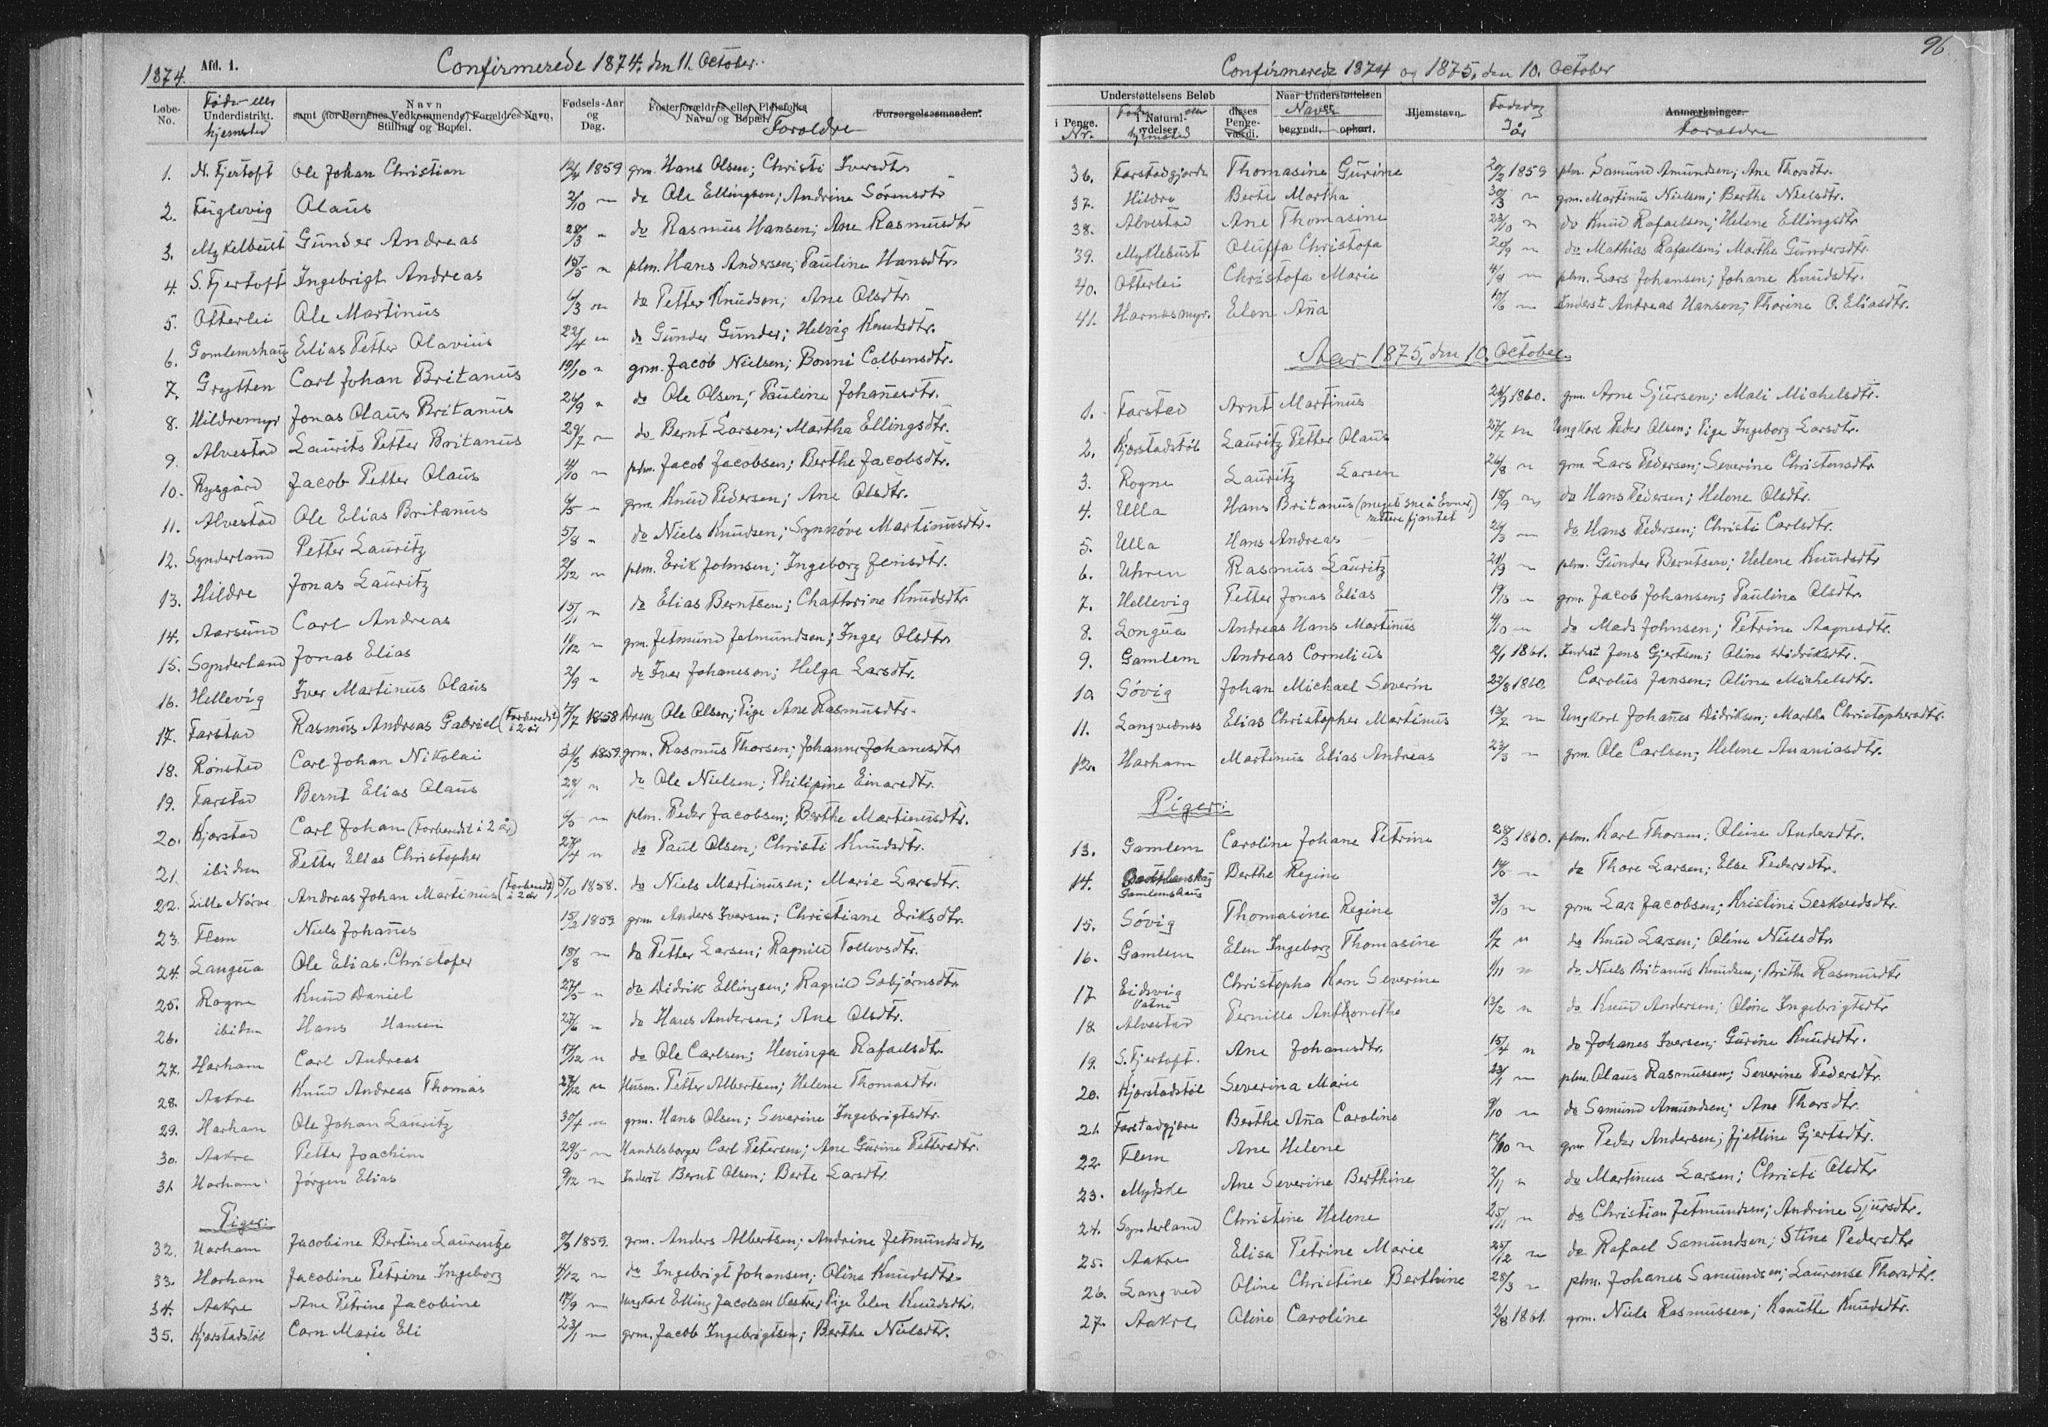 1874. Afd. 1. Confirmerede 1874, den 11. October.
Løbe-No. Føde- eller hjemsted Underdistrikt. Navn samt (for Børnenes Vedkommende) Forældres Navn, Stilling og Bopæl. Fødsels-Aar og Dag. Fosterforældres eller Pleiefolks Navn og Bopæl. Forældre Forsørgelsesmaaden.
1. N. Fjertoft Ole Johan Christian 12/4 1859 grm. Hans Olsen; Christi Iversdtr.
2. Fuglevig Olaus 2/10 " do Ole Ellingsen; Andrine Sørensdtr
3. Myklebust Gunder Andreas 28/3 " do Rasmus Hansen; Ane Rasmusdtr
4. S. Fjertoft Ingebrigt Andreas 15/5 " plm. Hans Andersen; Pauline Hansdtr.
5. Otterlei Ole Martinus 6/3 " do Petter Knudsen; Ane Olsdtr.
6. Gamlemshaug Elias Petter Olavius 22/4 " do Gunder Gunder; Helvig Knudsdtr.
7. Grytten Carl Johan Britanus 19/10 " grm. Jacob Nielsen; Bonni Colbensdtr.
8. Hildremyr Jonas Olaus Britanus 24/9 " do Ole Olsen; Pauline Johanesdtr.
9. Alvestad Laurits Petter Britanus 29/7 " do Bernt Larsen; Martha Ellingsdtr.
10. Rysgård Jacob Petter Olaus 4/10 " plm. Jacob Jacobsen; Berthe Jacobsdtr.
11. Alvestad Ole Elias Britanus 6/5 " grm. Knud Pedersen; Ane Olsdtr.
12. Synderland Petter Lauritz 5/8 " do Niels Knudsen; Synnøve Martinusdtr.
13. Hildre Jonas Lauritz 2/12 " plm. Erik Johnsen; Ingeborg Jensdtr.
14. Aarsund Carl Andreas 15/1 " do Elias Berntsen; Chathrine Knudsdtr.
15. Synderland Jonas Elias 14/12 " grm. Jetmund Jetmundsen; Inger Olsdtr.
16. Hellevig Iver Martinus Olaus 2/9 " do Iver Johanesson; Helga Larsdtr.
17. Farstad Rasmus Andreas Gabriel (Forberedt i 2 år) 7/7 1858 Ole Olsen; Pige Ane Rasmusdtr.
18. Rønstad Carl Johan Nikolai 31/3 1859 grm. Rasmus Thorsen; Johanne Johanesdtr
19. Farstad Bernt Elias Olaus 24/1 " do Ole Nielsen; Philipine Einarsdtr.
20. Kjørstad Carl Johan (Forberedt i 2 år) 6/5 " plm. Peder Jacobsen; Berthe Martinusdtr.
21. ibidem Petter Elias Christopher 27/4 " do Paul Olsen; Christi Knudsdtr.
22. Lille Nørve Andreas Johan Martinus (Forberedt i 2 år) 5/10 1858. do Niels Martinusen; Marie Larsdtr.
23. Flem Niels Johañes 15/2 1859 grm Anders Iversen; Christiane Eriksdtr.
24. Langua Ole Elias Christofer 18/8 " do Petter Larsen; Ragnild Tollevsdtr.
25. Rogne Knud Daniel 27/5 " do Didrik Ellingsen; Ragnild Sabjørnsdtr.
26. ibidem Hans Hansen 27/6 " do Hans Andersen; Ane Olsdtr.
27. Harham Carl Andreas 17/12 " do Ole Carlsen; Heninga Rafaelsdtr.
28. Aakre Knud Andreas Thomas 27/12 " Husm. Petter Albertsen; Helene Thomasdtr.
29. Harham Ole Johan Lauritz 30/4 " grm. Hans Olsen; Severine Ingebrigtsdtr.
30. Aakre Petter Joachim 29/5 " Handelsborger Carl Petersen; Ane Gurine Pettersdtr.
31. Harham Jørgen Elias 9/12 " Inderst Bernt Olsen; Berte Larsdtr.
Piger:
32. Harham Jacobine Bertine Laurentze 2/3 1859. grm. Anders Albertsen; Andrine Jetmundsdtr.
33. Harham Jacobine Petrine Ingeborg 4/12 " do Ingebrigt Johansen; Oline Knudsdtr.
34. Aakre Ane Petrine Jacobine 17/9 " Ungkarl Elling Jacobsen Vestre; Pige Elen Knudsdtr.
35. Kjørstadstøl Carn Marie Eli 23/1 " grm. Jacob Ingebrigtsen; Berthe Nielsdtr.
96
Confirmerede 1874 og 1875, den 10. October
Understøttelsens Beløb Naar Understøttelsen Hjemstavn. Fødsdag År Anmærkninger. Forældre
i Penge. Nr. i Natural-ydelser. Føde eller hjemsted disses Penge-værdi. Navn begyndt. ophørt.
36. Farstadgjerde Thomasine Gurine 20/2 1859 plm. Samund Amundsen; Ane Thorsdtr.
37. Hildre Berte Martha 30/3 " grm. Martinus Nielsen; Berthe Nielsdtr.
38. Alvestad Ane Thomasine 23/10 " do Knud Rafaelsen; Helene Ellingsdtr
39. Myklebust Oluffa Christofa 20/9 " do Mathias Rafaelsen; Marthe Gundersdtr.
40. Otterlei Christofa Marie 4/8 " plm. Lars Johansen; Johane Knudsdtr.
41. Harnesmyr. Elen Aña 17/6 " Inderst Andreas Hansen; Thorine O. Eliasdtr.
Aar 1875, den 10. October.
1. Farstad Arnt Martinus 24/9 1860. grm. Arne Sjursen; Mali Michelsdtr.
2. Kjørstadstøl Lauritz Petter Olaus 27/7 " Ungkarl Peder Olsen; Pige Ingeborg Larsdtr.
3. Rogne Lauritz Larsen 26/8 " grm Lars Pedersen; Severine Christensdtr
4. Ulla Hans Britanus (meget små Evner, fjantet) 18/9 " do Hans Pedersen; Helene Olsdtr.
5. Ulla Hans Andreas 24/3 " do Hans Pedersen; Christi Carlsdtr.
6. Uhren Rasmus Lauritz 24/9 " plm. Gunder Berntsen; Helene Knudsdtr
7. Hellevig Petter Jonas Elias 19/10 " grm. Jacob Johansen; Pauline Olsdtr.
8. Longua Andreas Hans Martinus 4/10 " do Mads Johnsen; Petrine Aagnesdtr.
9. Gamlem Andreas Cornelius 2/1 1861. Inderst Jens Gjertsen; Oline Didriksdtr.
10 Søvig Johan Michael Severin 22/8 1860. Carolus Jansen; Oline Michelsdtr.
11. Langvednes Elias Christopher Martinus 13/2 " Ungkarl Johañes Didriksen; Martha Christophersdtr.
12. Harham Martinus Elias Andreas 23/3 " grm Ole Carlsen; Helene Ananiasdtr.
Piger:
13. Gamlem Caroline Johane Petrine 28/3 1860. plm. Karl Thorsen; Oline Andersdtr.
14. Gamlemshaug Berthe Regine 14/6 " do Thore Larsen; Else Pedersdtr.
15. Søvig Thomasine Regine 3/10 " grm. Lars Jacobsen; Kristine Sesknedsdtr.
16. Gamlem Elen Ingeborg Thomasine 1/7 " do Knud Larsen; Oline Nielsdtr
17 Eidsvig Vatne Christopha Karn Severine 1/11 " do Niels Britanus Knudsen; Brithe Rasmusdtr
18. Alvestad Pernille Anthonethe 13/2 " do Knud Andersen; Oline Ingebrigtsdtr
19. S. Fjertoft. Ane Johanesdtr. 15/4 " do Johanes Iversen; Gurine Knudsdtr.
20. Kjørstadstøl Severina Marie 23/1 " plm. Olaus Rasmussen; Severine Pedersdtr.
21 Farstadgjære Berthe Aña Caroline 9/10 " do Samund Amundsen; Ane Thorsdtr.
22. Flem Ane Helene 12/10 " grm Peder Andersen; Fjelline Gjertsdtr.
23. Mydske Ane Severine Berthine 2/11 " do Martinus Larsen; Christi Olsdtr
24. Synderland Christine Helene 25/11 " do Christian Jetmundsen; Andrine Sjursdtr.
25. Aakre Elisa Petrine Marie 25/12 " do Rafael Samundsen; Stine Pedersdtr
26. Langved Oline Christine Berthine 28/3 " plm. Johanes Samundsen; Laurense Thorsdtr.
27. Aakre Oline Caroline 2/8 1861. grm. Niels Rasmussen; Kanutte Knudsdtr.